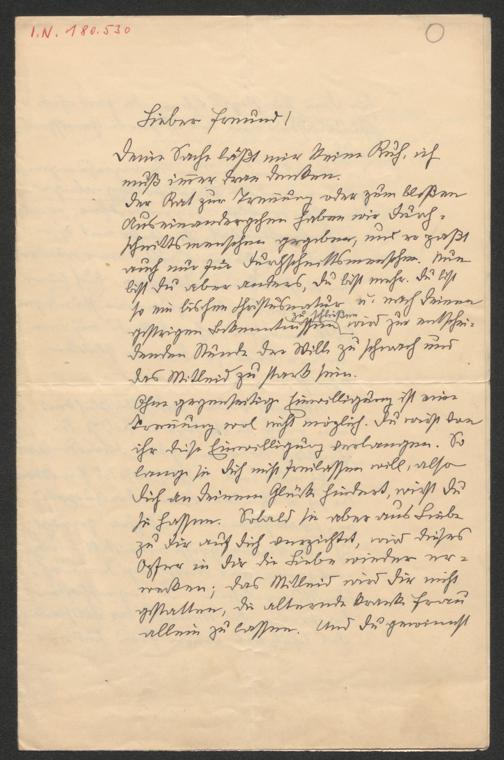 I.N. 180.530
Lieber Freund!
Deine Sache läßt mir keine Ruh, ich
muß im̅er dran denken.
Der Rat zur Trennung oder zum bloßen
Auseinandergehen haben wir Durch-
schnittsmenschen gegeben, und er paßt
auch nur für Durchschnittsmenschen. Nun
bist Du aber anders, Du bist mehr. Du bist
so ein bischen Christusnatur u. nach Deinen
zu schließen
gestrigen Bekenntnissen wird zur entschei-
denden Stunde der Wille zu schwach und
das Mitleid zu stark sein.
Ohne gegenseitige Einwilligung ist eine
Trennung wol nicht möglich. Du wirst von
ihr diese Einwilligung verlangen. So
lange sie Dich nicht freilassen will, also
Dich an Deinem Glücke hindert, wirst Du
sie hassen. Sobald sie aber aus Liebe
zu Dir auf Dich verzichtet, wird dieses
Opfer in Dir die Liebe wieder er-
wecken; das Mitleid wird Dir nicht
gestatten, die alternde kranke Frau
allein zu lassen. Und Du gewinnst